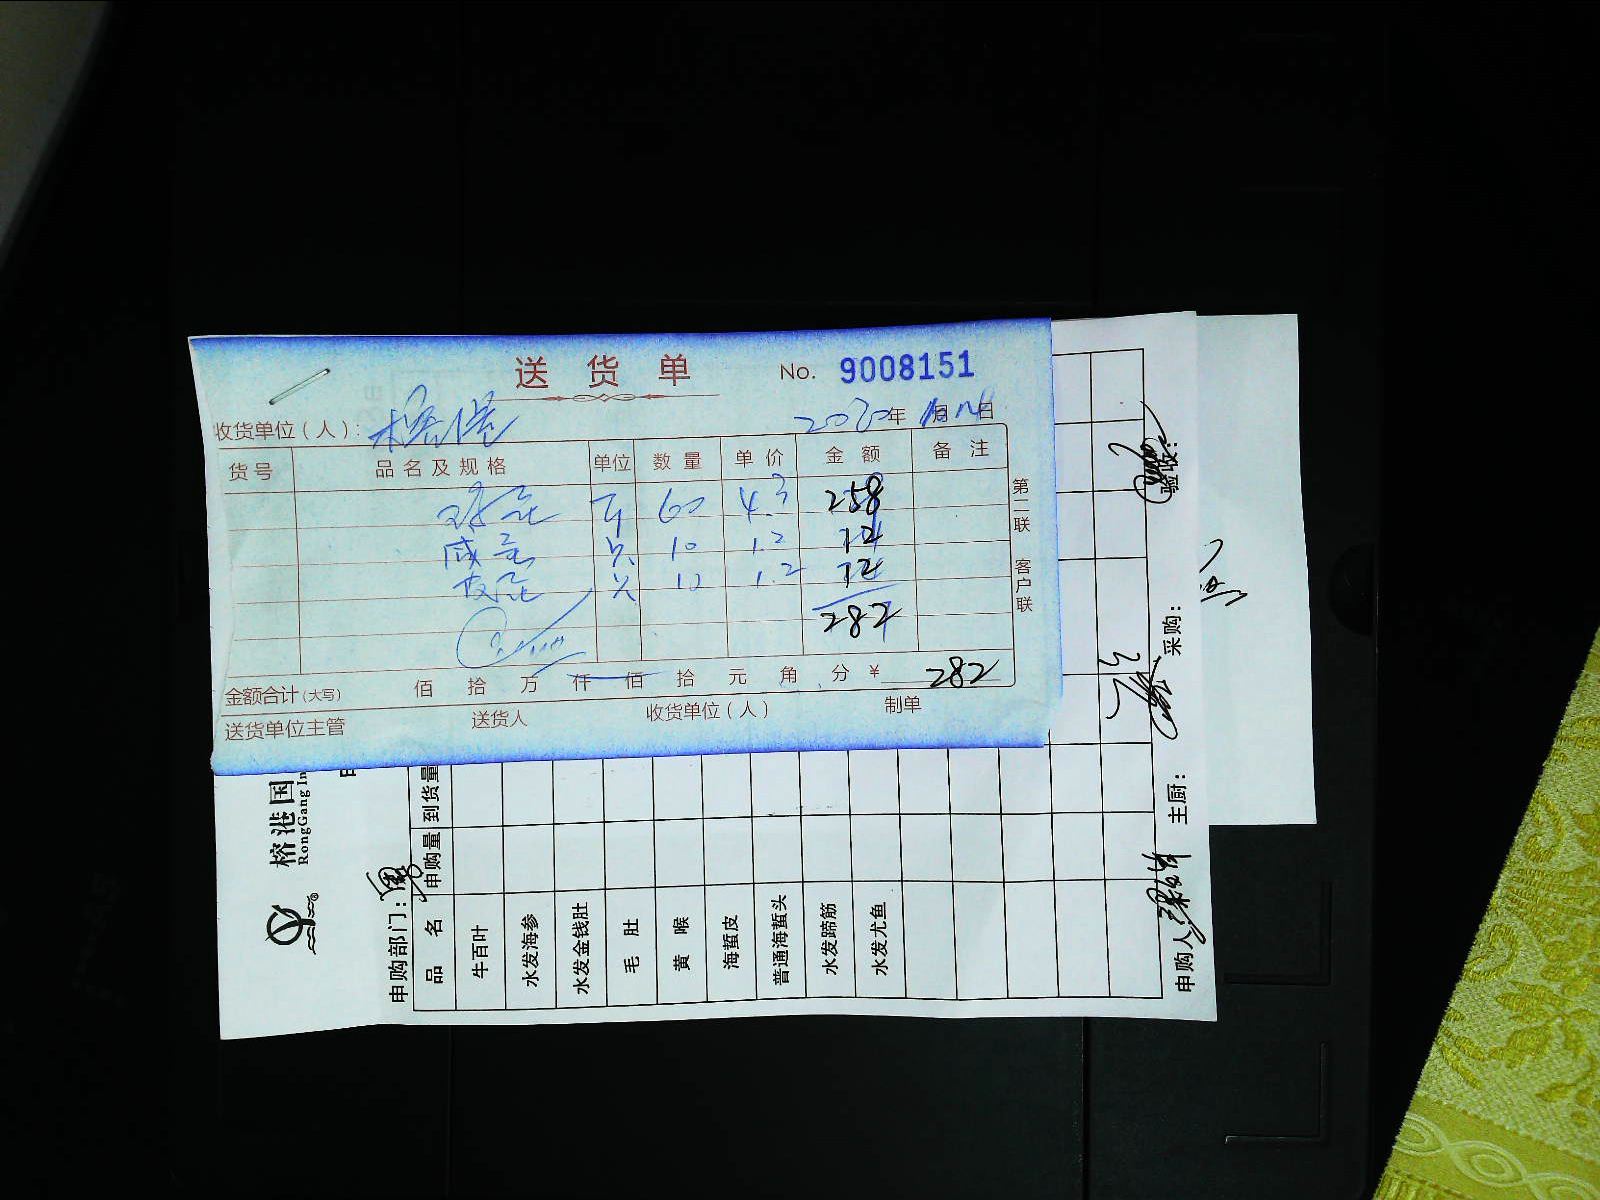 送货单
No. 9008151
收货单位(人): 榕港
2020年 月 日
货号 品名及规格 单位 数量 单价 金额 备注
斤 60 4.3 258
咸蛋 只 10 1.2 12
皮蛋 只 10 1.2 12
282
金额合计(大写) 佰 拾 万 仟 佰 拾 元 角 分 ¥ 282
送货单位主管 送货人 收货单位(人) 制单
第二联 客户联
榕港国
RongGang In
申购部门:
品名 申购量 到货量
牛百叶
水发海参
水发金钱肚
毛肚
黄喉
海蜇皮
普通海蜇头
水发蹄筋
水发尤鱼
申购人 主厨: 采购: 验收: